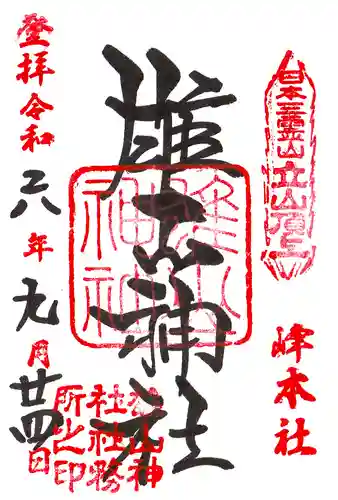 日本三靈山立山頂上
峰本社
雄山神社
雄山
神社
登拝令和六年九月廿四日
雄山神
社社務
所之印